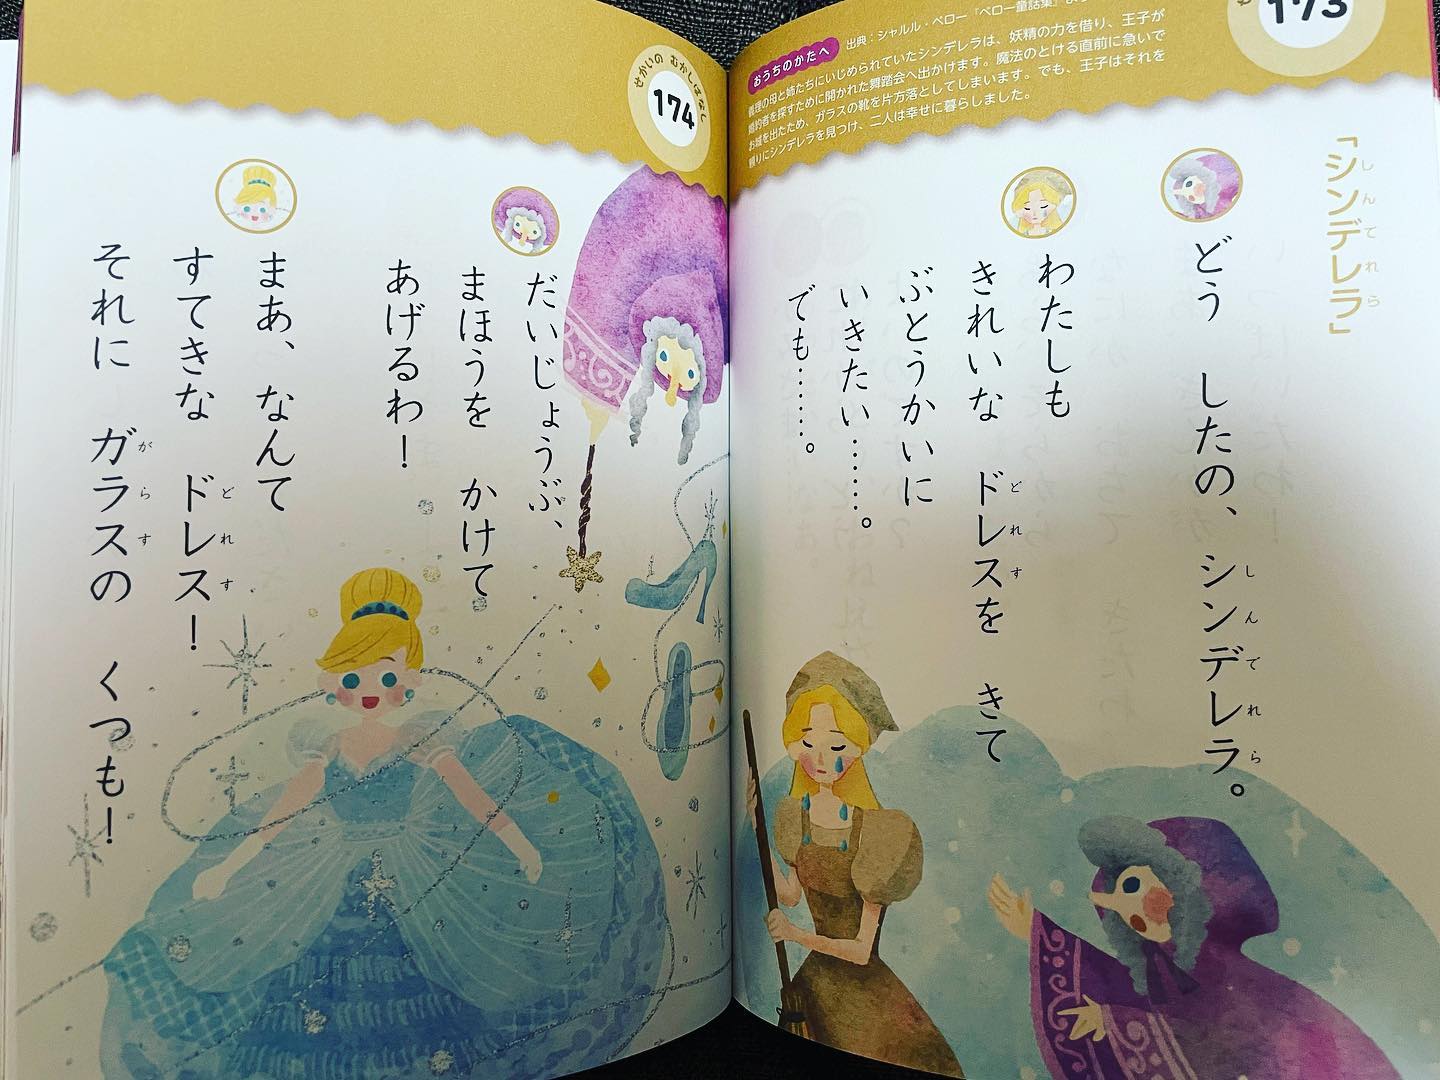 173
おうちのかたへ
出典：シャルル・ペロー『ペロー童話集』より
義理の母と姉たちにいじめられていたシンデレラは、妖精の力を借り、王子が
婚約者を探すために開かれた舞踏会へ出かけます。魔法のとける直前に急いで
お城を出たため、ガラスの靴を片方落としてしまいます。でも、王子はそれを
頼りにシンデレラを見つけ、二人は幸せに暮らしました。
「シンデレラ」
しんでれら
どう したの、シンデレラ。
しんでれら
わたしも
きれいな ドレスを きて
どれす
ぶとうかいに
いきたい……。
でも……。
せかいの むかしばなし
174
だいじょうぶ、
まほうを かけて
あげるわ！
まあ、なんて
すてきな ドレス！
どれす
それに ガラスの くつも！
がらす